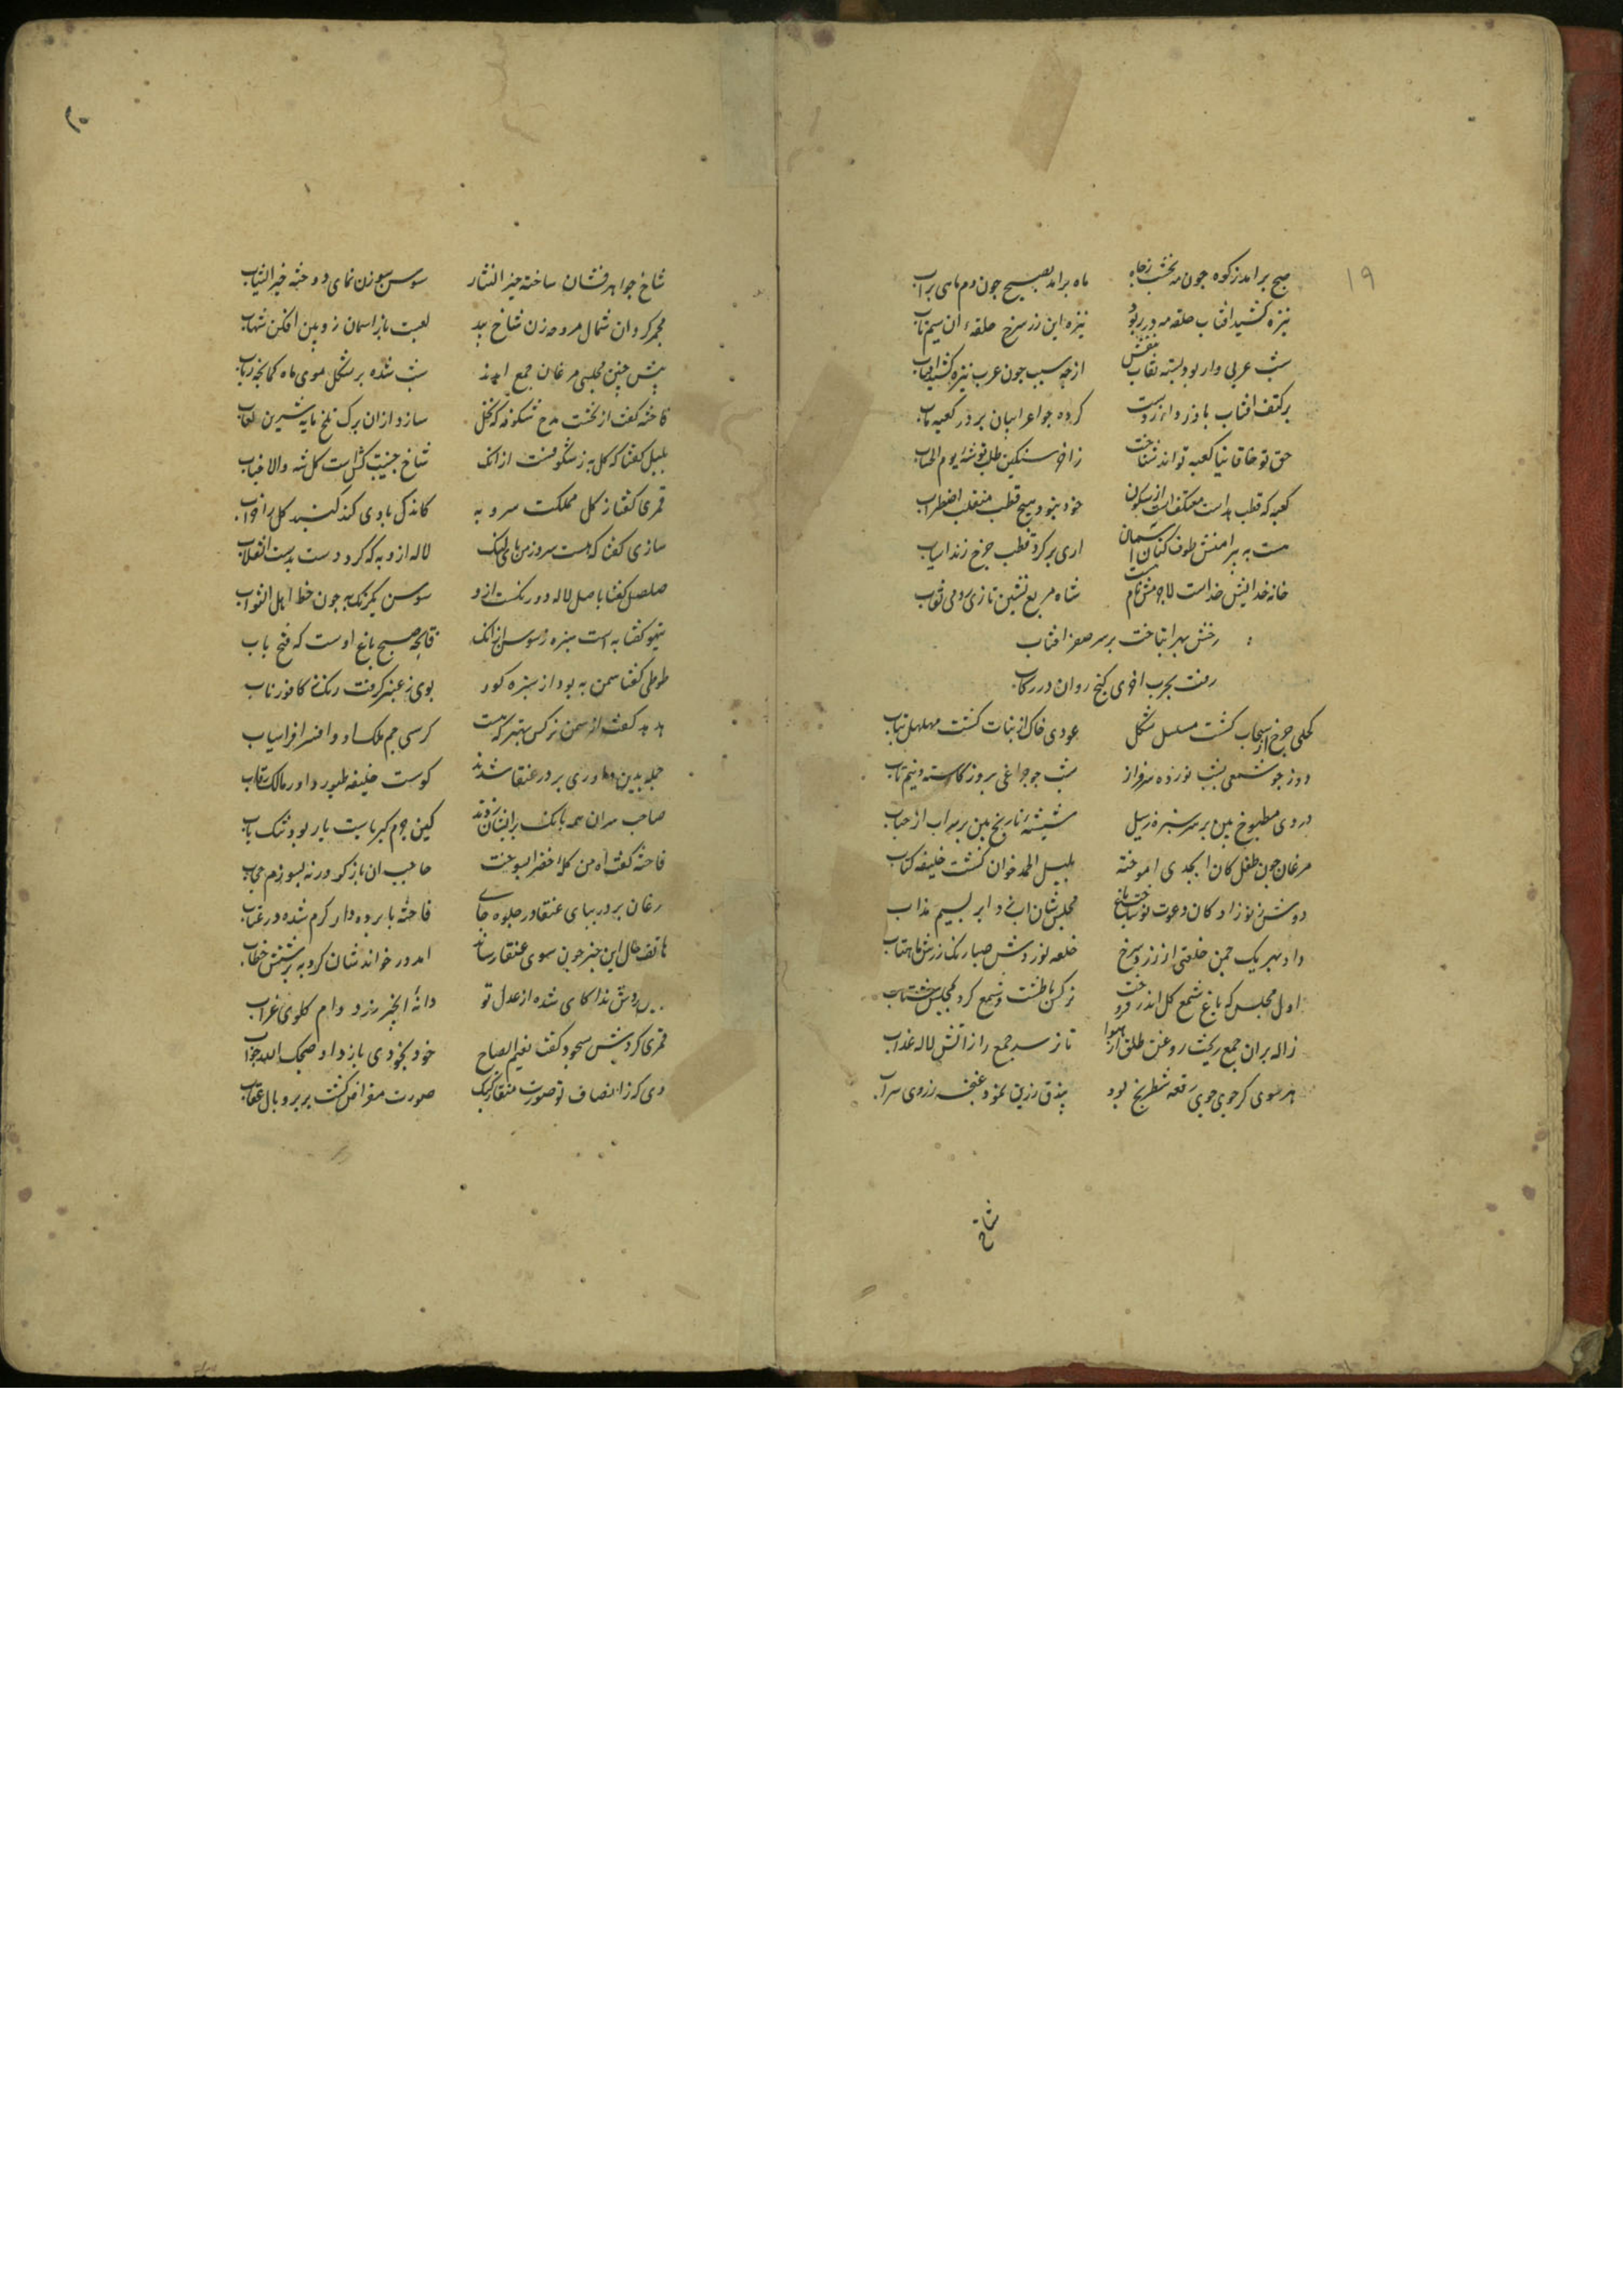 ۱۹
صبح برامد ز کوه جون مه نخشب ز جاه ماه برامد بصبح جون دم ماهی ز اب
نیزه کشید افتاب حلقه مه در ربود نیزه این زر سرخ حلقه ان سیم ناب
شب عربی وار بود بسته نقاب بنفش ازجه سبب جون عرب نیزه کشید افتاب
بر کتف افتاب باز ردای زرست کرده جو اعرابیان بر در کعبه ماب
حق تو خاقانیا کعبه تواند شناخت ز اخور سنکین طلب توشه یوم الحساب
کعبه که قطب هداست معتکفست از سکون خود نبود هیج قطب منقلب اضطراب
هست به پیرامنش طوف کنان اسمان اری بر کرد قطب جرخ زند اسیاب
خانه خدایش خداست لاجرمش نام هست شاه مربع نشین تازی رومی نقاب
رخش بهرا بتاخت بر سر صفر افتاب
رفت بجرب اخوری کنج روان در رکاب
کحلی جرخ از سحاب کشت مسلسل بشکل عودی خاک از نبات کشت مهلهل بتاب
روز جو شمعی بشب نورده سرفراز شب جو جراغی بروز کاسته و نیم تاب
دردی مطبوخ بین بر سر سبزه ز سیل شیشه نارنج بین بر سر اب از حباب
مرغان جون طفلکان ابجدی اموخته بلبل الحمد خوان کشت خلیفه کتاب
دوش ز نوزادکان دعوت نو ساخت باغ مجلسشان اب زد ابر بسیم مذاب
داد بهر یک جمن خلعتی از زرد و سرخ خلعه نوردش صبا رنک رزش ماهتاب
اول مجلس که باغ شمع کل اندر فروخت نرکس با طشت و شمع کرد بمجلس شتاب
ژاله بران جمع ریخت روغن طلق از هوا تا نرسد جمع را ز اتش لاله عذاب
هر سوی کز جوی جوی رقعه شطرنج بود بیذق زرین نمود غنجه ز روی سراب
شاخ
۲۰
شاخ جواهر فشان ساخته خیر النثار سوسن سوزن نمای دوخته خیر الثیاب
مجمر کردان شمال مروحه زن شاخ بید لعبت باز اسمان زوبین افکن شهاب
پیش جنین مجلسی مرغان جمع امدند شب شده بر شکل موی ماه کمانجه رباب
فاخته کفت از نخست مدح شکوفه که نخل سازد ازان برک تلخ مایه شیرین لعاب
بلبل کفتا که کل به ز شکوفست ازانک شاخ جنیبت کش است کل شه والا جناب
قمری کفتا ز کل مملکت سرو به کاندک بادی کند کنبد کل را خراب
ساری کفتا که هست سرو ز من پای لنک لاله ازو به که کرد دشت بدشت انقلاب
صلصل کفتا باصل لاله دو رنکست ازو سوسن یکرنک به جون خط اهل الثواب
تیهو کفتا به است سبزه ز سوسن ازانک فاتحه صحیح باغ اوست که فتح باب
طوطی کفتا سمن به بود از سبزه کو بوی ز عنبر کرفت رنک ز کافور ناب
هدهد کفت از سمن نرکس بهتر که هست کرسی جم ملک او و افسر افراسیاب
جمله بدین داوری بر در عنقا شدند کوست خلیفه طیور داور مالک رقاب
صاحب ستران همه بانک بر ایشان زدند کین حرم کبریاست بار بود تنک یاب
فاخته کفت اه من کله خضرا بسوخت حاجب این بار کو ورنه بسوزم حجاب
مرغان بر در بپای عنقا در خلوه جای فاخته با برده دار کرم شده در عتاب
هاتف حال این خبر جون سوی عنقا رساند امد و در خواندشان کرد به پرسش خطاب
دانه انجیر رزد دام کلوی غراب
قمری کردش سجود کفت نعیم الصباح خود بخودی باز داد صبحک الله جواب
وی که ز انصاف تو صورت منقار کبک صورت مقراض کشت بر پر و بال عقاب